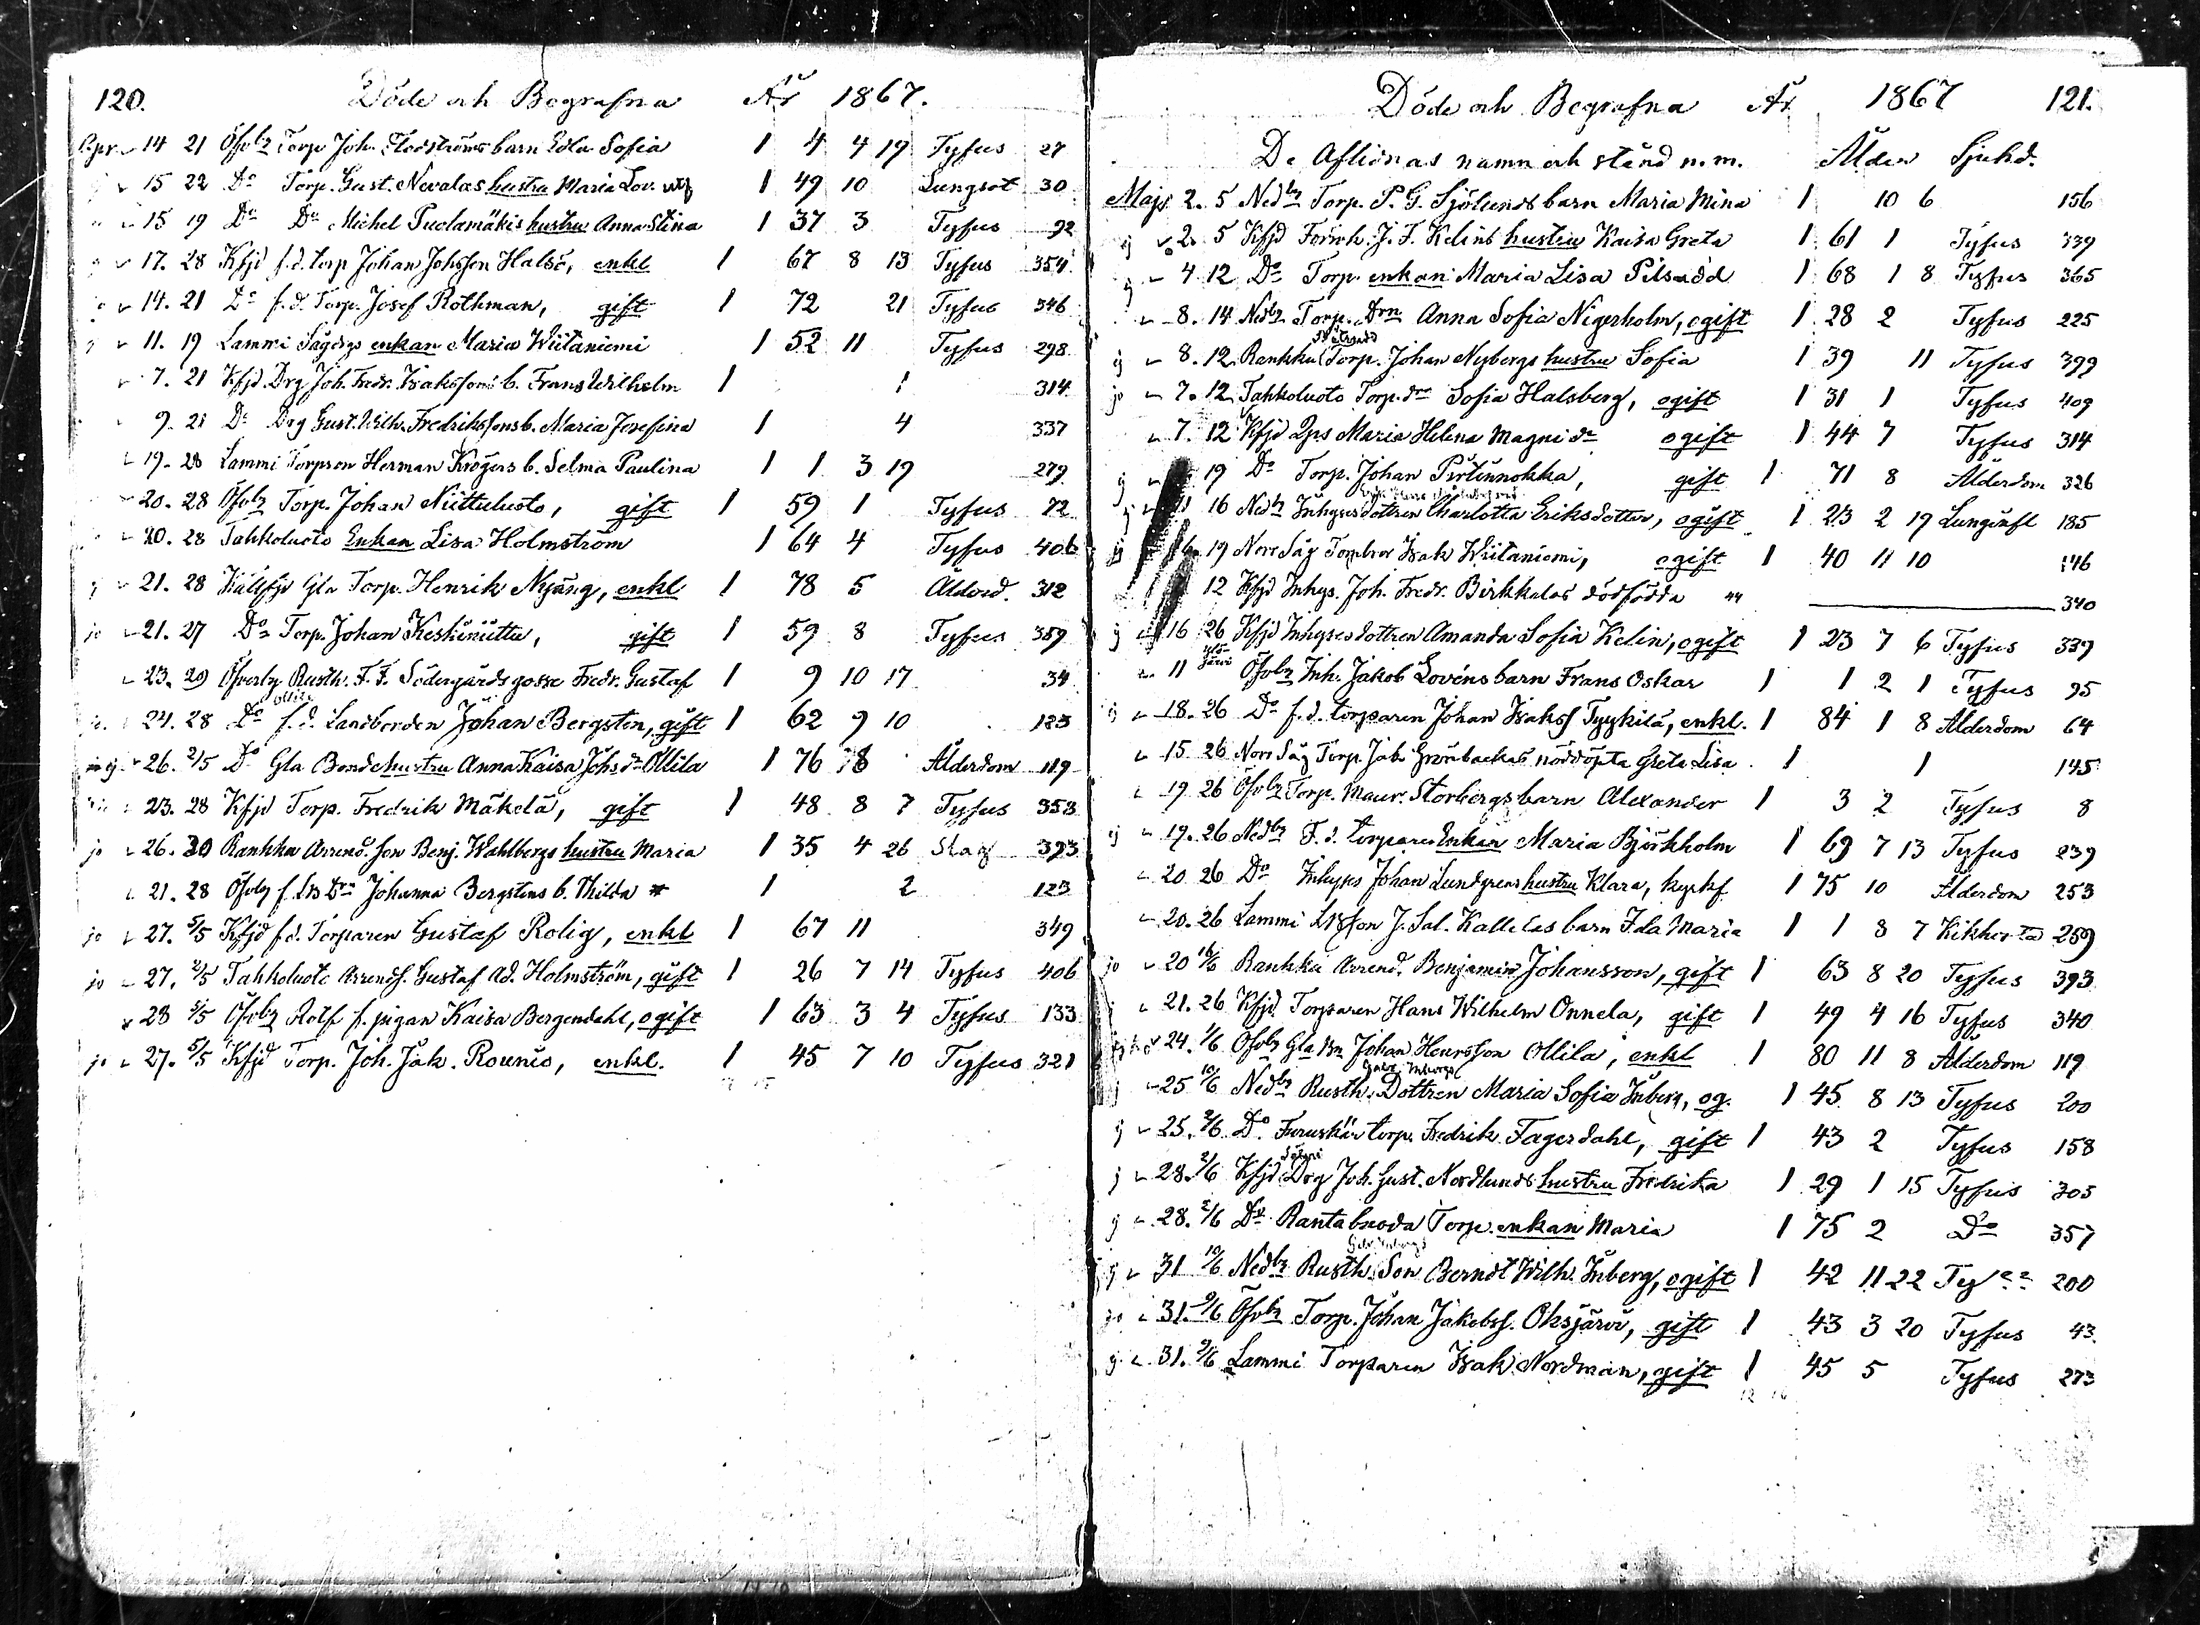 120. Döde och Begrafna År 1867.
Apr. 14 21 Öfvby Torp. Joh. Flodströms barn Edla Sofia 1 4 4 19 Tyfus 27
15 22 Do Torp. Gust. Nevalas hustru Maria Lov. 1 49 10 Lungsot 30
15 19 Do Do Michel Puolamäkis hustru Anna Stina 1 37 3 Tyfus 92
17. 28 Kfjd f.d. torp Johan Johsson Halsö, enkl 1 67 8 13 Tyfus 354
14. 21 Do f.d. Torp. Josef Rothman, gift 1 72 21 Tyfus 346
11. 19 Lammi enkan Maria Wiitaniemi 1 52 11 Tyfus 298
7. 21 Kfjd. Drg Joh. Fredr. Isakssons b. Frans Wilhelm 1 1 314
9. 21 Do Drg Gust. Wilh. Fredrikssons b. Maria Josefina 1 4 337
19. 28 Lammi Torpson Herman Krögers b. Selma Paulina 1 1 3 19 279
20. 28 Öfvby Torp. Johan Niittuluoto, gift 1 59 1 Tyfus 72
20. 28 Tahkoluoto Enkan Lisa Holmström 1 64 4 Tyfus 406
21. 28 Gla Torp. Henrik Nyäng, enkl 1 78 5 Ålderd. 312
jo 21. 27 Do Torp. Johan Keskiniittu, gift 1 59 8 Tyfus 359
23. 29 Öfverby Rusth. F. F. Södergårds gosse Fredr. Gustaf 1 9 10 17 34
Ollila
24. 28 Do f.d. Landbonden Johan Bergsten, gift 1 62 9 10 123
26. 2/5 Do Gla Bondehustru Anna Kaisa Johsdr Ollila 1 76 8 Ålderdom 119
23. 28 Kfjd Torp. Fredrik Mäkelä, gift 1 48 8 7 Tyfus 353
jo 26. 30 Ranhka Arrend. son Benj. Wahlbergs hustru Maria 1 35 4 26 Slag 393
21. 28 Öfvby f. Johanna Bergstens b. Thilda 1 2 123
jo 27. 5/5 Kfjd f.d. Torparen Gustaf Rolig, enkl 1 67 11 349
jo 27. 2/5 Tahkoluoto Arrends. Gustaf Ad. Holmström, gift 1 26 7 14 Tyfus 406
28 5/5 Öfvby Rotf f. pigan Kaisa Bergendahl, ogift 1 63 3 4 Tyfus 133
jo 27. 5/5 Kfjd Torp. Joh. Jak. Rouniö, enkl. 1 45 7 10 Tyfus 321
Döde och Begrafna År 1867 121.
De Aflidnas namn och stånd m.m. Ålder Sjukd.
Maji 2. 5 Nedby Torp. P. G. Sjölunds barn Maria Mina 1 10 6 156
2. 5 Kfjd J. F. Kelins hustru Kaisa Greta 1 61 1 Tyfus 339
4 12 Do Torp. enkan Maria Lisa 1 68 1 8 Tyfus 365
8. 14 Nedby Torp. Drn Anna Sofia Nigerholm, ogift 1 28 2 Tyfus 225
8. 12 Ranhka Torp. Johan Nybergs hustru Sofia 1 39 11 Tyfus 399
jo 7. 12 Tahkoluoto Torp. drn Sofia Halsberg, ogift 1 31 1 Tyfus 409
7. 12 Kfjd Maria Helena Magni dr ogift 1 44 7 Tyfus 314
19 Do Torp. Johan Pirtinnokka, gift 1 71 8 Ålderdom 326
16 Nedby Inhysesdottren Charlotta Eriksdotter, ogift 1 23 2 19 Lunginfl 185
19 Norr Såg Isak Wiitaniemi, ogift 1 40 11 10 146
12 Kfjd Inhys. Joh. Fredr. Birkkalas dödfödda 340
16 26 Kfjd Inhysesdottren Amanda Sofia Kelin, ogift 1 23 7 6 Tyfus 339
11 Öfvby Inh. Jakob Lovéns barn Frans Oskar 1 1 2 1 Tyfus 95
18. 26 Do f.d. torparen Johan Isakss Tyykilä, enkl. 1 84 1 8 Ålderdom 64
15 26 Norr Såg Torp. Jak. Grönbackas nöddöpta Greta Lisa 1 1 145
19 26 Öfvby Torp. Maur. Storbergs barn Alexander 1 3 2 Tyfus 8
19. 26 Nedby F. d. torpare Enkan Maria Björkholm 1 69 7 13 Tyfus 239
20 26 Do Inhyses Johan Lundgrens hustru Klara, 1 75 10 Ålderdom 253
20. 26 Lammi J. Sal. Kallelas barn Ida Maria 1 1 8 7 Kikhosta 259
jo 20 16/6 Ranhka Arrend. Benjamin Johansson, gift 1 63 8 20 Tyfus 393
21. 26 Kfjd Torparen Hans Wilhelm Onnela, gift 1 49 4 16 Tyfus 340
24. 1/6 Öfvby Gla Bn Johan Henrsson Ollila, enkl 1 80 11 8 Ålderdom 119
25 10/6 Nedby Rusth. Dottren Maria Sofia Inberg, og. 1 45 8 13 Tyfus 200
25. 2/6 Do Furuskär torp. Fredrik Fagerdahl, gift 1 43 2 Tyfus 158
28. 2/6 Kfjd Drg Joh. Gust. Nordlunds hustru Fredrika 1 29 1 15 Tyfus 305
28. 2/6 Do Rantabroda Torp. enkan Maria 1 75 2 Do 357
31 10/6 Nedby Rusth. Son Berndt Wilh. Inberg, ogift 1 42 11 22 Ty 200
jo 31. 9/6 Öfvby Torp. Johan Jakobss. Oksjärvi, gift 1 43 3 20 Tyfus 43
31. 9/6 Lammi Torparen Isak Nordman, gift 1 45 5 Tyfus 273